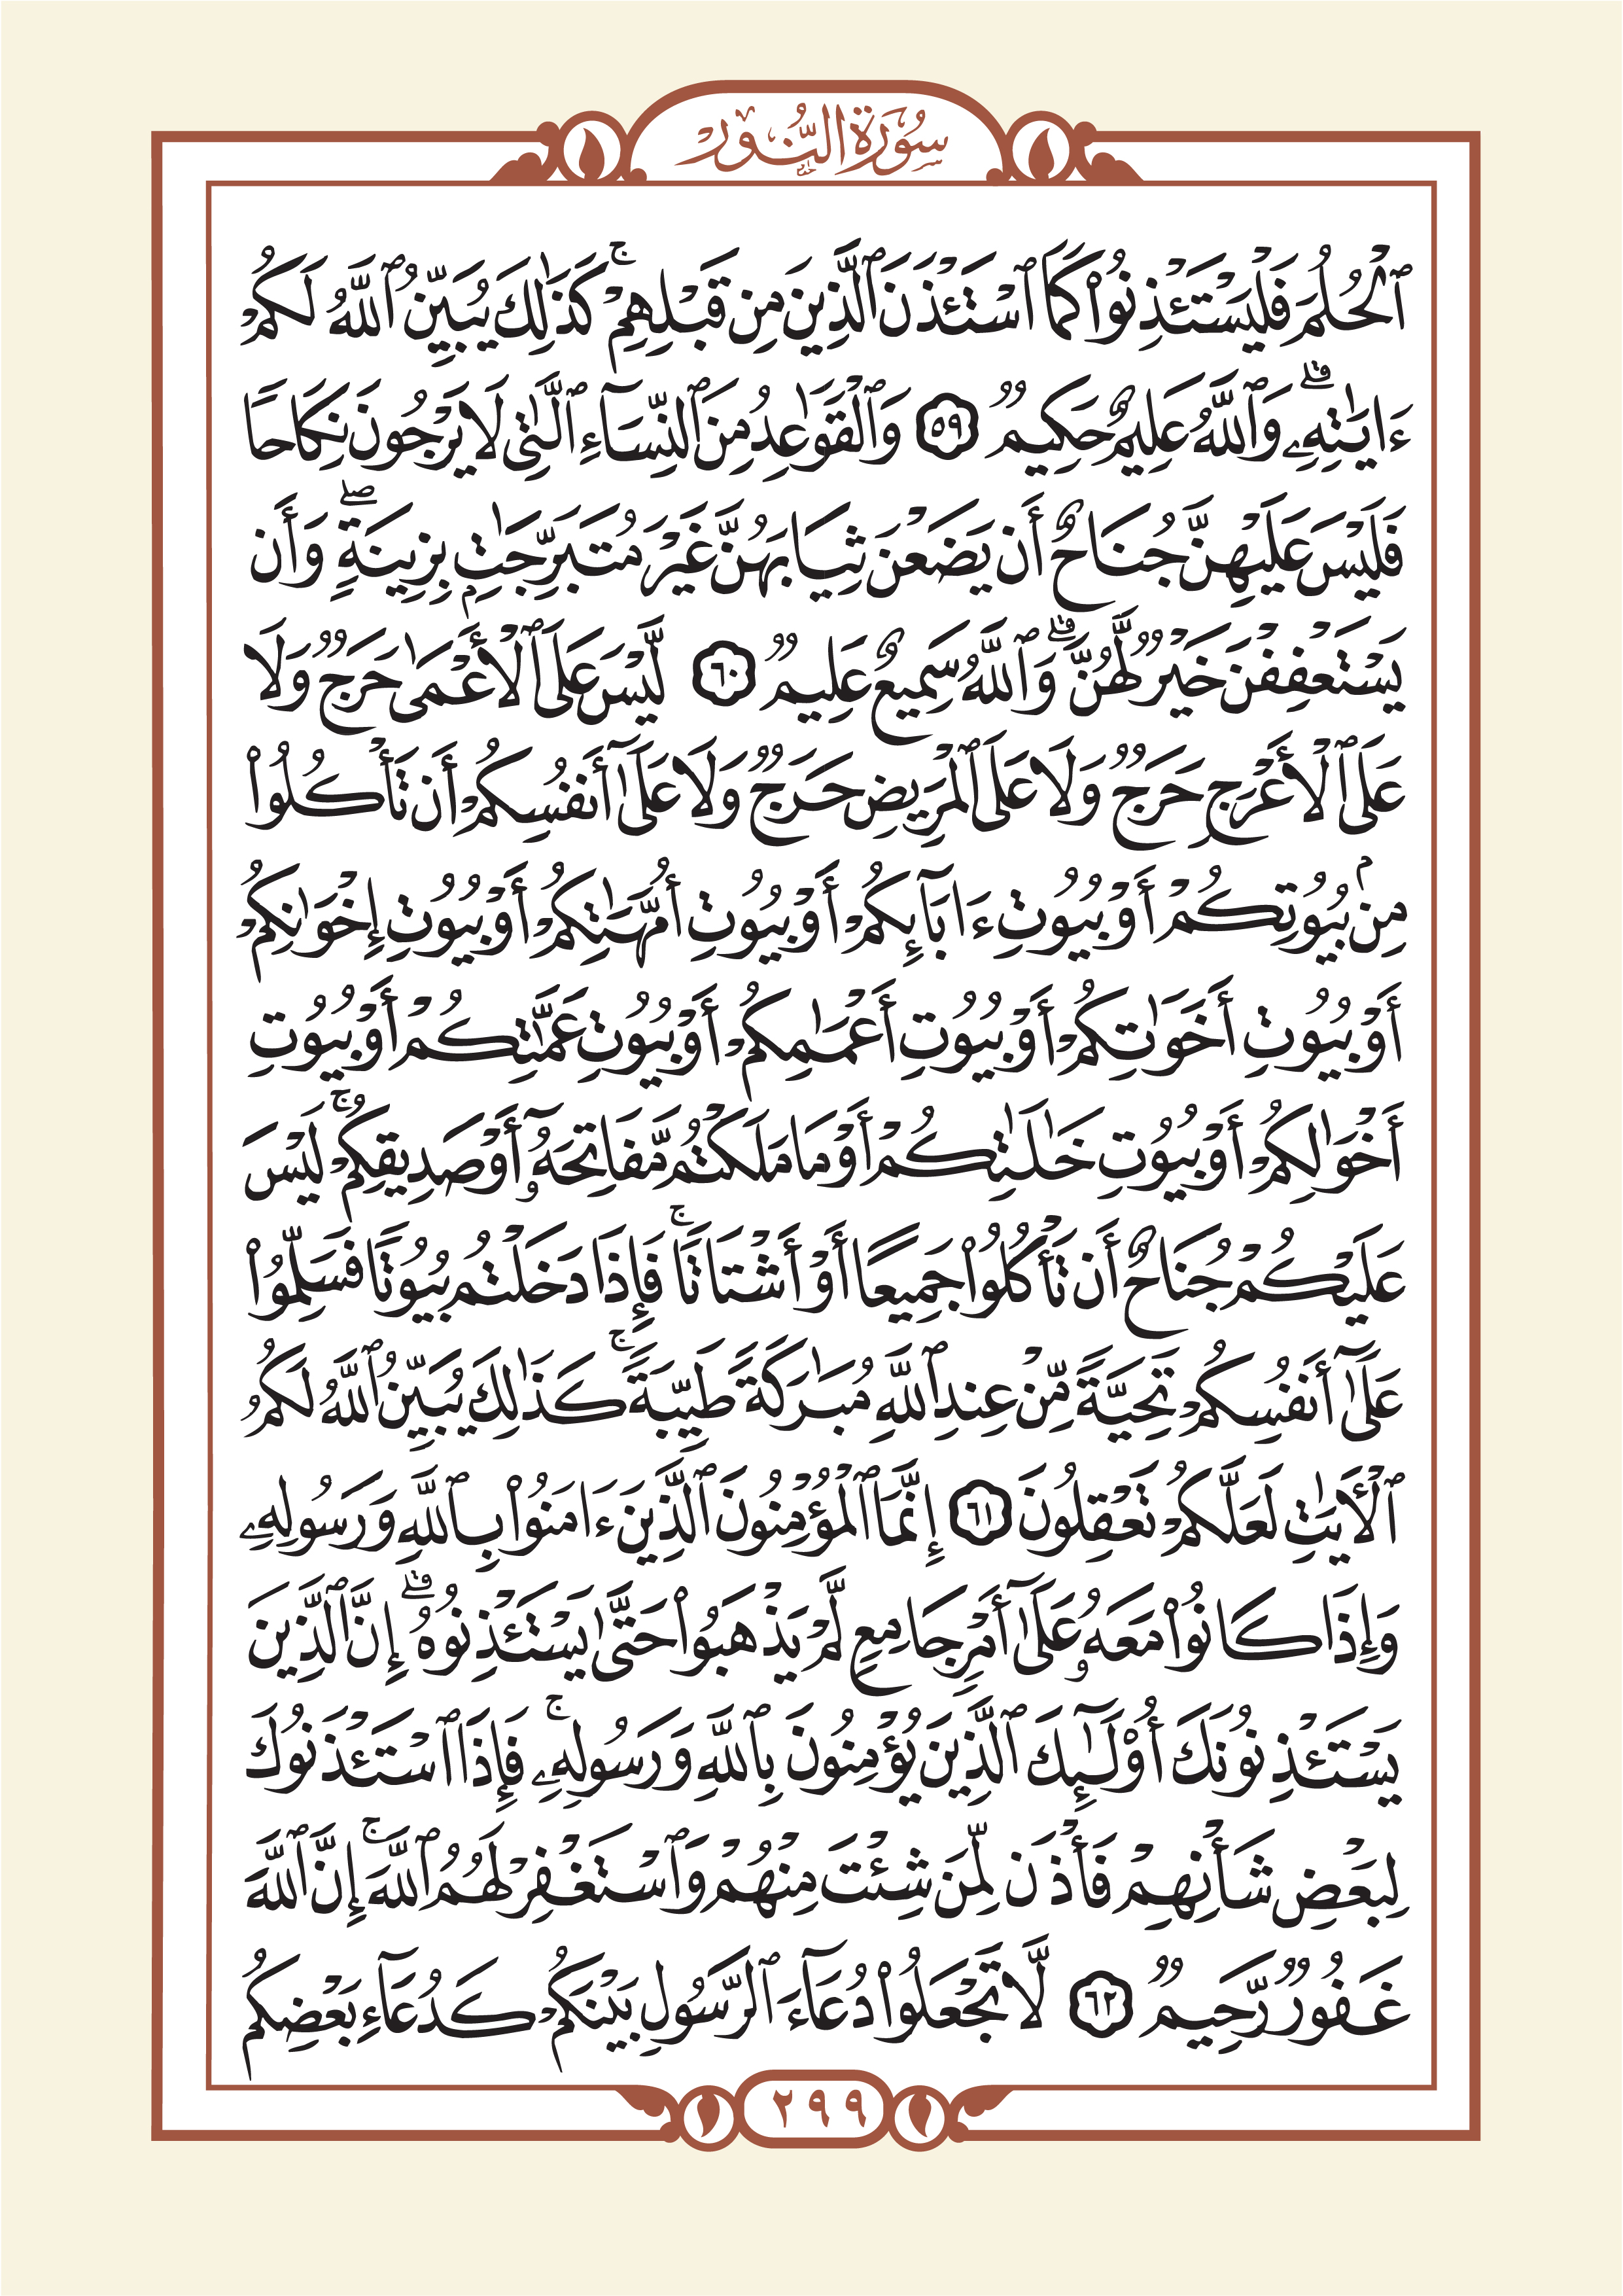 سُورَةُ النُّورِ
ٱلۡحُلُمَ فَلۡيَسۡتَـٔۡذِنُواْ كَمَا ٱسۡتَـٔۡذَنَ ٱلَّذِينَ مِن قَبۡلِهِمۡۚ كَذَٰلِكَ يُبَيِّنُ ٱللَّهُ لَكُمۡ
ءَايَٰتِهِۦۗ وَٱللَّهُ عَلِيمٌ حَكِيمٞ ٥٩ وَٱلۡقَوَٰعِدُ مِنَ ٱلنِّسَآءِ ٱلَّٰتِي لَا يَرۡجُونَ نِكَاحٗا
فَلَيۡسَ عَلَيۡهِنَّ جُنَاحٌ أَن يَضَعۡنَ ثِيَابَهُنَّ غَيۡرَ مُتَبَرِّجَٰتِۭ بِزِينَةٖۖ وَأَن
يَسۡتَعۡفِفۡنَ خَيۡرٞ لَّهُنَّۗ وَٱللَّهُ سَمِيعٌ عَلِيمٞ ٦٠ لَّيۡسَ عَلَى ٱلۡأَعۡمَىٰ حَرَجٞ وَلَا
عَلَى ٱلۡأَعۡرَجِ حَرَجٞ وَلَا عَلَى ٱلۡمَرِيضِ حَرَجٞ وَلَا عَلَىٰٓ أَنفُسِكُمۡ أَن تَأۡكُلُواْ
مِنۢ بُيُوتِكُمۡ أَوۡ بُيُوتِ ءَابَآئِكُمۡ أَوۡ بُيُوتِ أُمَّهَٰتِكُمۡ أَوۡ بُيُوتِ إِخۡوَٰنِكُمۡ
أَوۡ بُيُوتِ أَخَوَٰتِكُمۡ أَوۡ بُيُوتِ أَعۡمَٰمِكُمۡ أَوۡ بُيُوتِ عَمَّٰتِكُمۡ أَوۡ بُيُوتِ
أَخۡوَٰلِكُمۡ أَوۡ بُيُوتِ خَٰلَٰتِكُمۡ أَوۡ مَا مَلَكۡتُم مَّفَاتِحَهُۥٓ أَوۡ صَدِيقِكُمۡۚ لَيۡسَ
عَلَيۡكُمۡ جُنَاحٌ أَن تَأۡكُلُواْ جَمِيعًا أَوۡ أَشۡتَاتٗاۚ فَإِذَا دَخَلۡتُم بُيُوتٗا فَسَلِّمُواْ
عَلَىٰٓ أَنفُسِكُمۡ تَحِيَّةٗ مِّنۡ عِندِ ٱللَّهِ مُبَٰرَكَةٗ طَيِّبَةٗۚ كَذَٰلِكَ يُبَيِّنُ ٱللَّهُ لَكُمُ
ٱلۡأٓيَٰتِ لَعَلَّكُمۡ تَعۡقِلُونَ ٦١ إِنَّمَا ٱلۡمُؤۡمِنُونَ ٱلَّذِينَ ءَامَنُواْ بِٱللَّهِ وَرَسُولِهِۦ
وَإِذَا كَانُواْ مَعَهُۥ عَلَىٰٓ أَمۡرٖ جَامِعٖ لَّمۡ يَذۡهَبُواْ حَتَّىٰ يَسۡتَـٔۡذِنُوهُۗ إِنَّ ٱلَّذِينَ
يَسۡتَـٔۡذِنُونَكَ أُوْلَٰٓئِكَ ٱلَّذِينَ يُؤۡمِنُونَ بِٱللَّهِ وَرَسُولِهِۦۚ فَإِذَا ٱسۡتَـٔۡذَنُوكَ
لِبَعۡضِ شَأۡنِهِمۡ فَأۡذَن لِّمَن شِئۡتَ مِنۡهُمۡ وَٱسۡتَغۡفِرۡ لَهُمُ ٱللَّهَۚ إِنَّ ٱللَّهَ
غَفُورٞ رَّحِيمٞ ٦٢ لَّا تَجۡعَلُواْ دُعَآءَ ٱلرَّسُولِ بَيۡنَكُمۡ كَدُعَآءِ بَعۡضِكُم
٢٩٩